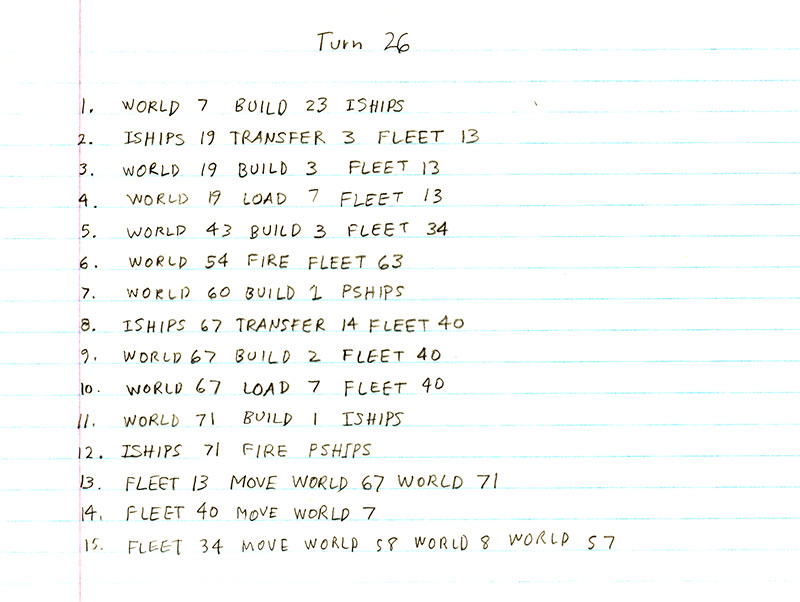 Turn 26
1. WORLD 7 BUILD 23 ISHIPS
2. ISHIPS 19 TRANSFER 3 FLEET 13
3. WORLD 19 BUILD 3 FLEET 13
4. WORLD 19 LOAD 7 FLEET 13
5. WORLD 43 BUILD 3 FLEET 34
6. WORLD 54 FIRE FLEET 63
7. WORLD 60 BUILD 1 PSHIPS
8. ISHIPS 67 TRANSFER 14 FLEET 40
9. WORLD 67 BUILD 2 FLEET 40
10. WORLD 67 LOAD 7 FLEET 40
11. WORLD 71 BUILD 1 ISHIPS
12. ISHIPS 71 FIRE PSHIPS
13. FLEET 13 MOVE WORLD 67 WORLD 71
14. FLEET 40 MOVE WORLD 7
15. FLEET 34 MOVE WORLD 58 WORLD 8 WORLD 57